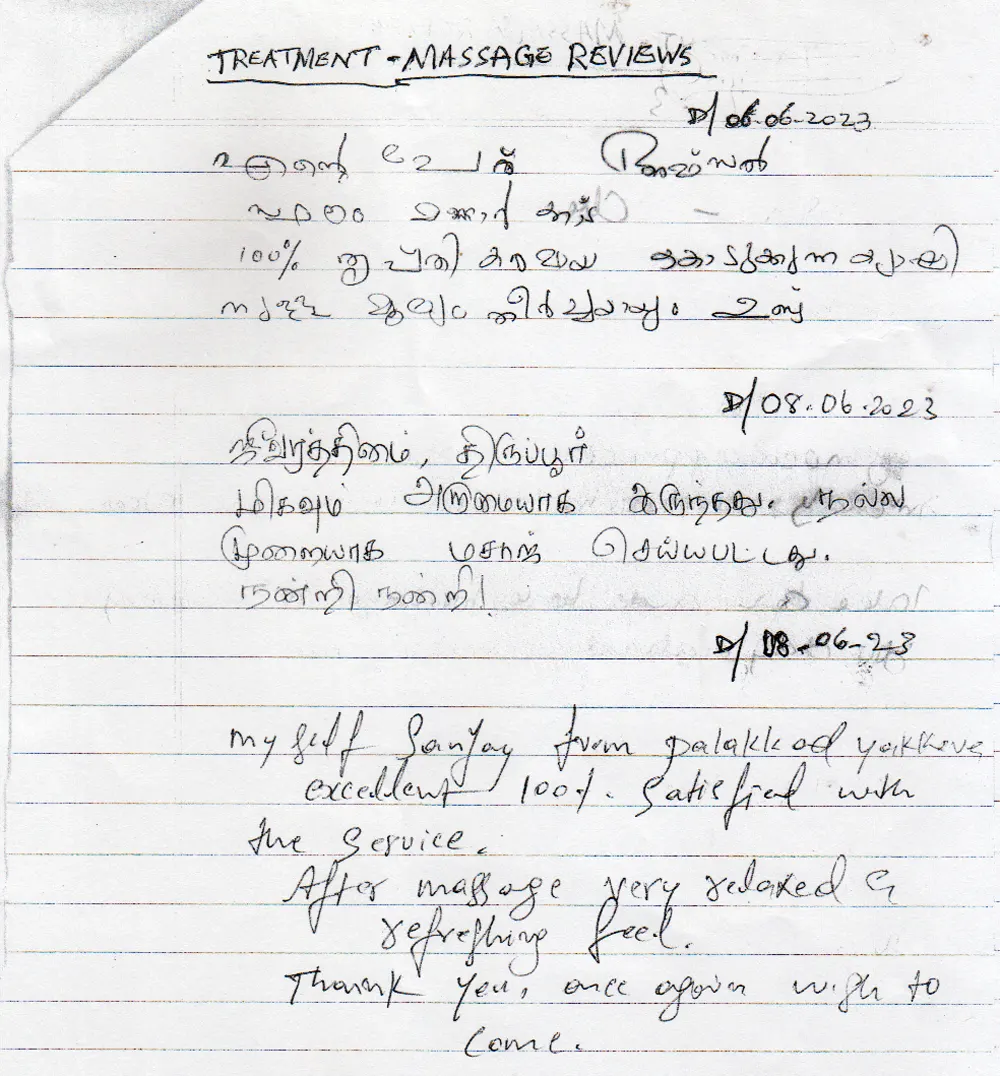 TREATMENT - MASSAGE REVIEWS
D/ 06.06-2023
എന്റെ പേര്
സ്ഥലം മണ്ണാർകാട്
100% തൃപ്തി
D/ 08.06.2023
ஜீவரத்தினம், திருப்பூர்
மிகவும் அருமையாக இருந்தது. நல்ல
முறையாக மசாஜ் செய்யபட்டது.
நன்றி நன்றி!
D/ 08-06-23
my self Sanjay from palakkad
excellent 100%. Satisfied with
the Service.
After massage very relaxed &
refreshing feel.
Thank you, once again wish to
come.